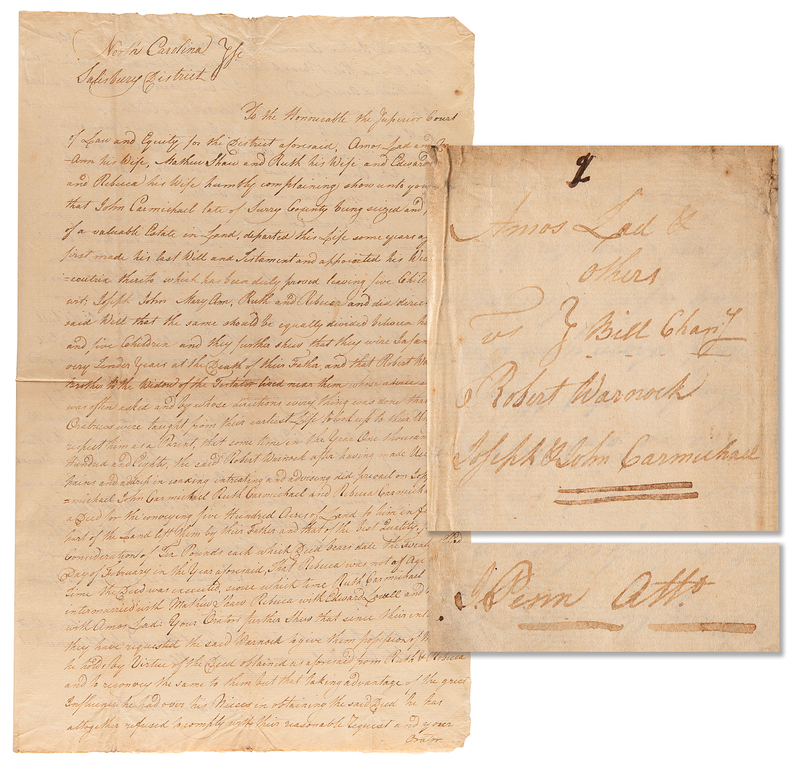 North Carolina
Salisbury District
To the Honourable the Superior Court
of Law and Equity for the District aforesaid, Amos Lad and
Ann his Wife, Mathew Shaw and Ruth his Wife and Edward
and Rebeca his Wife humbly complaining show unto you
that John Carmichael late of Surry County being seized and
of a valuable Estate in Land, departed this Life some years
first made his last Will and Testament and appointed his
=ecutrix thereto which has been duly proved leaving five
wit: Joseph John Mary Ann, Ruth and Rebecca and did
said Will that the same should be equally divided between
and five Children and they further shew that they were
very Tender Years at the Death of their Father, and that Robert
brother to the widow of the Testator lived near them whose advice
was often asked and by whose directions every thing was done
Oratrixes were taught from their earliest Life to look up to their
respect him as a Parent, that some time in the Year One thousand
Hundred and Eighty, the said Robert Warnock after having made
pains and in sending intreating and advising did prevail on
=michael John Carmichael Ruth Carmichael and Rebeca
a Deed for the conveying five Hundred Acres of Land to him in
part of the Land left them by their Father and that of the best Quality,
Consideration of Ten Pounds each which Deed bears date the
Day of February in the Year aforesaid, That Rebeca was not of Age
Time the Deed was executed, since which time Ruth Carmichael
intermarried with Mathew Shaw Rebeca with Edward Lovell and
with Amos Lad: Your Orators further Shew that since their
they have requested the said Warnock to give them possession of
he holds by Virtue of the Deed obtained as aforesaid from Ruth & Rebeca
and to reconvey the same to them but that taking advantage of the great
Influence he had over his Nieces in obtaining the said Deed he has
altogether refused to comply with their reasonable Request and your
Orator
Amos Lad &
others
vs Bill Chany
Robert Warnock
Joseph & John Carmichael
J Penn Atto